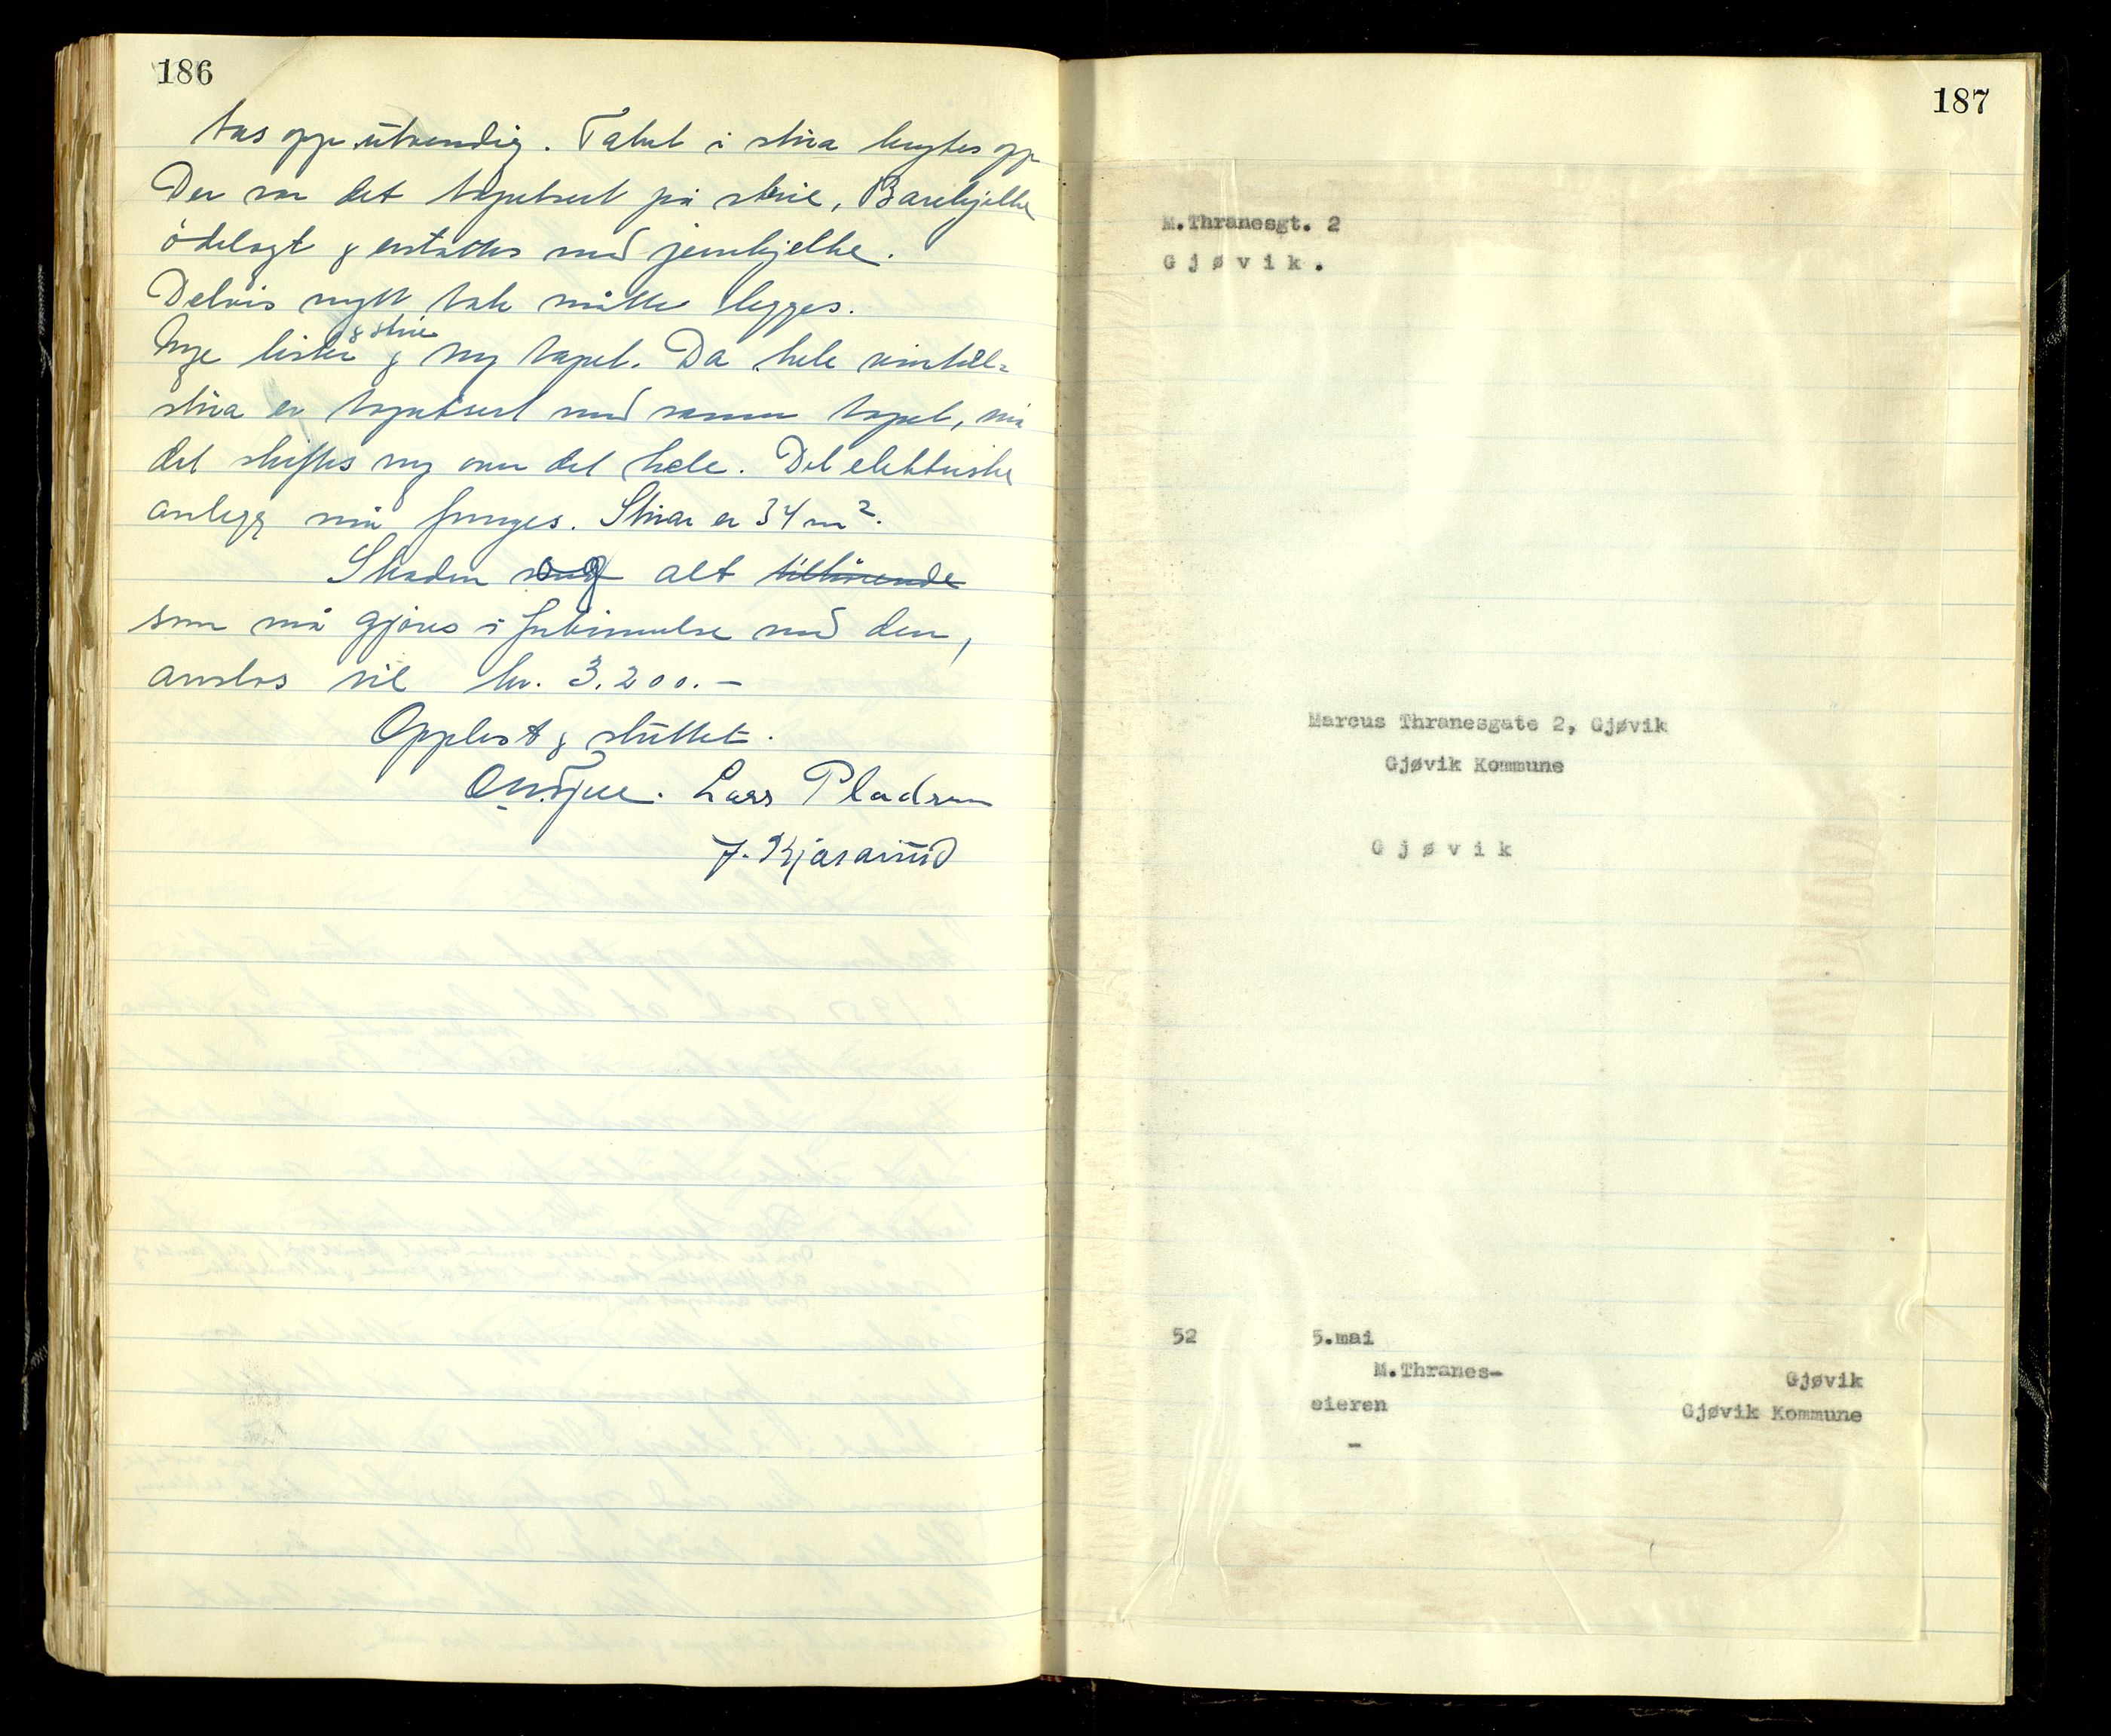 186
tas opp utvendig. Taket i stua knytes opp
Der var det tapetsert på strie, Barebjelke
ödelagt & erstattes med jernbjelke.
Delvis nytt tak måtte legges.
& strie
Nye lister & ny tapet. Da hele vinkel-
stua er tapetsert med samme tapet, må
det skiftes ny over det hele. Det elektriske
anlegg må fornyes. Stuar er 34 m².
Skaden og alt tilhörende
som må gjöres i forbinnelse med den,
anslås til kr. 3.200.-
Opplest & sluttet.
Lars Pladsen
187
M.Thranesgt. 2
Gjøvik.
Marcus Thranesgate 2, Gjøvik
Gjøvik Kommune
Gjøvik
52 5.mai
M.Thranes- Gjøvik
eieren Gjøvik Kommune
-